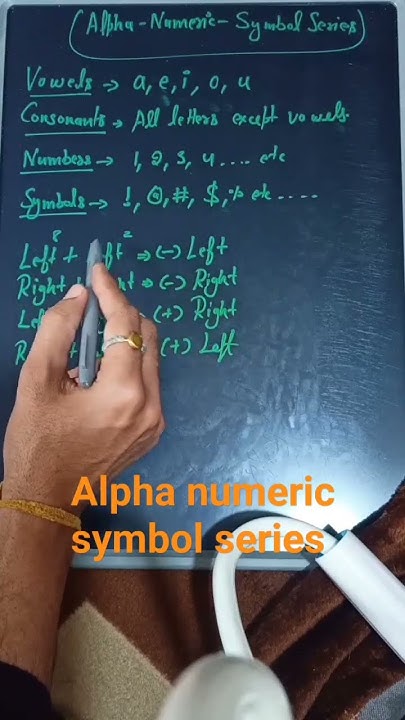 (Alpha-Numeric-Symbol Series)
Vowels → a, e, i, o, u
Consonants → All letters except vowels.
Numbers → 1, 2, 3, 4 .... etc
Symbols → !, @, #, $, % etc ....
Left⁸ + Left² ⇒ (-) Left
Right ⇒ (-) Right
(+) Right
(+) Left
Alpha numeric
symbol series